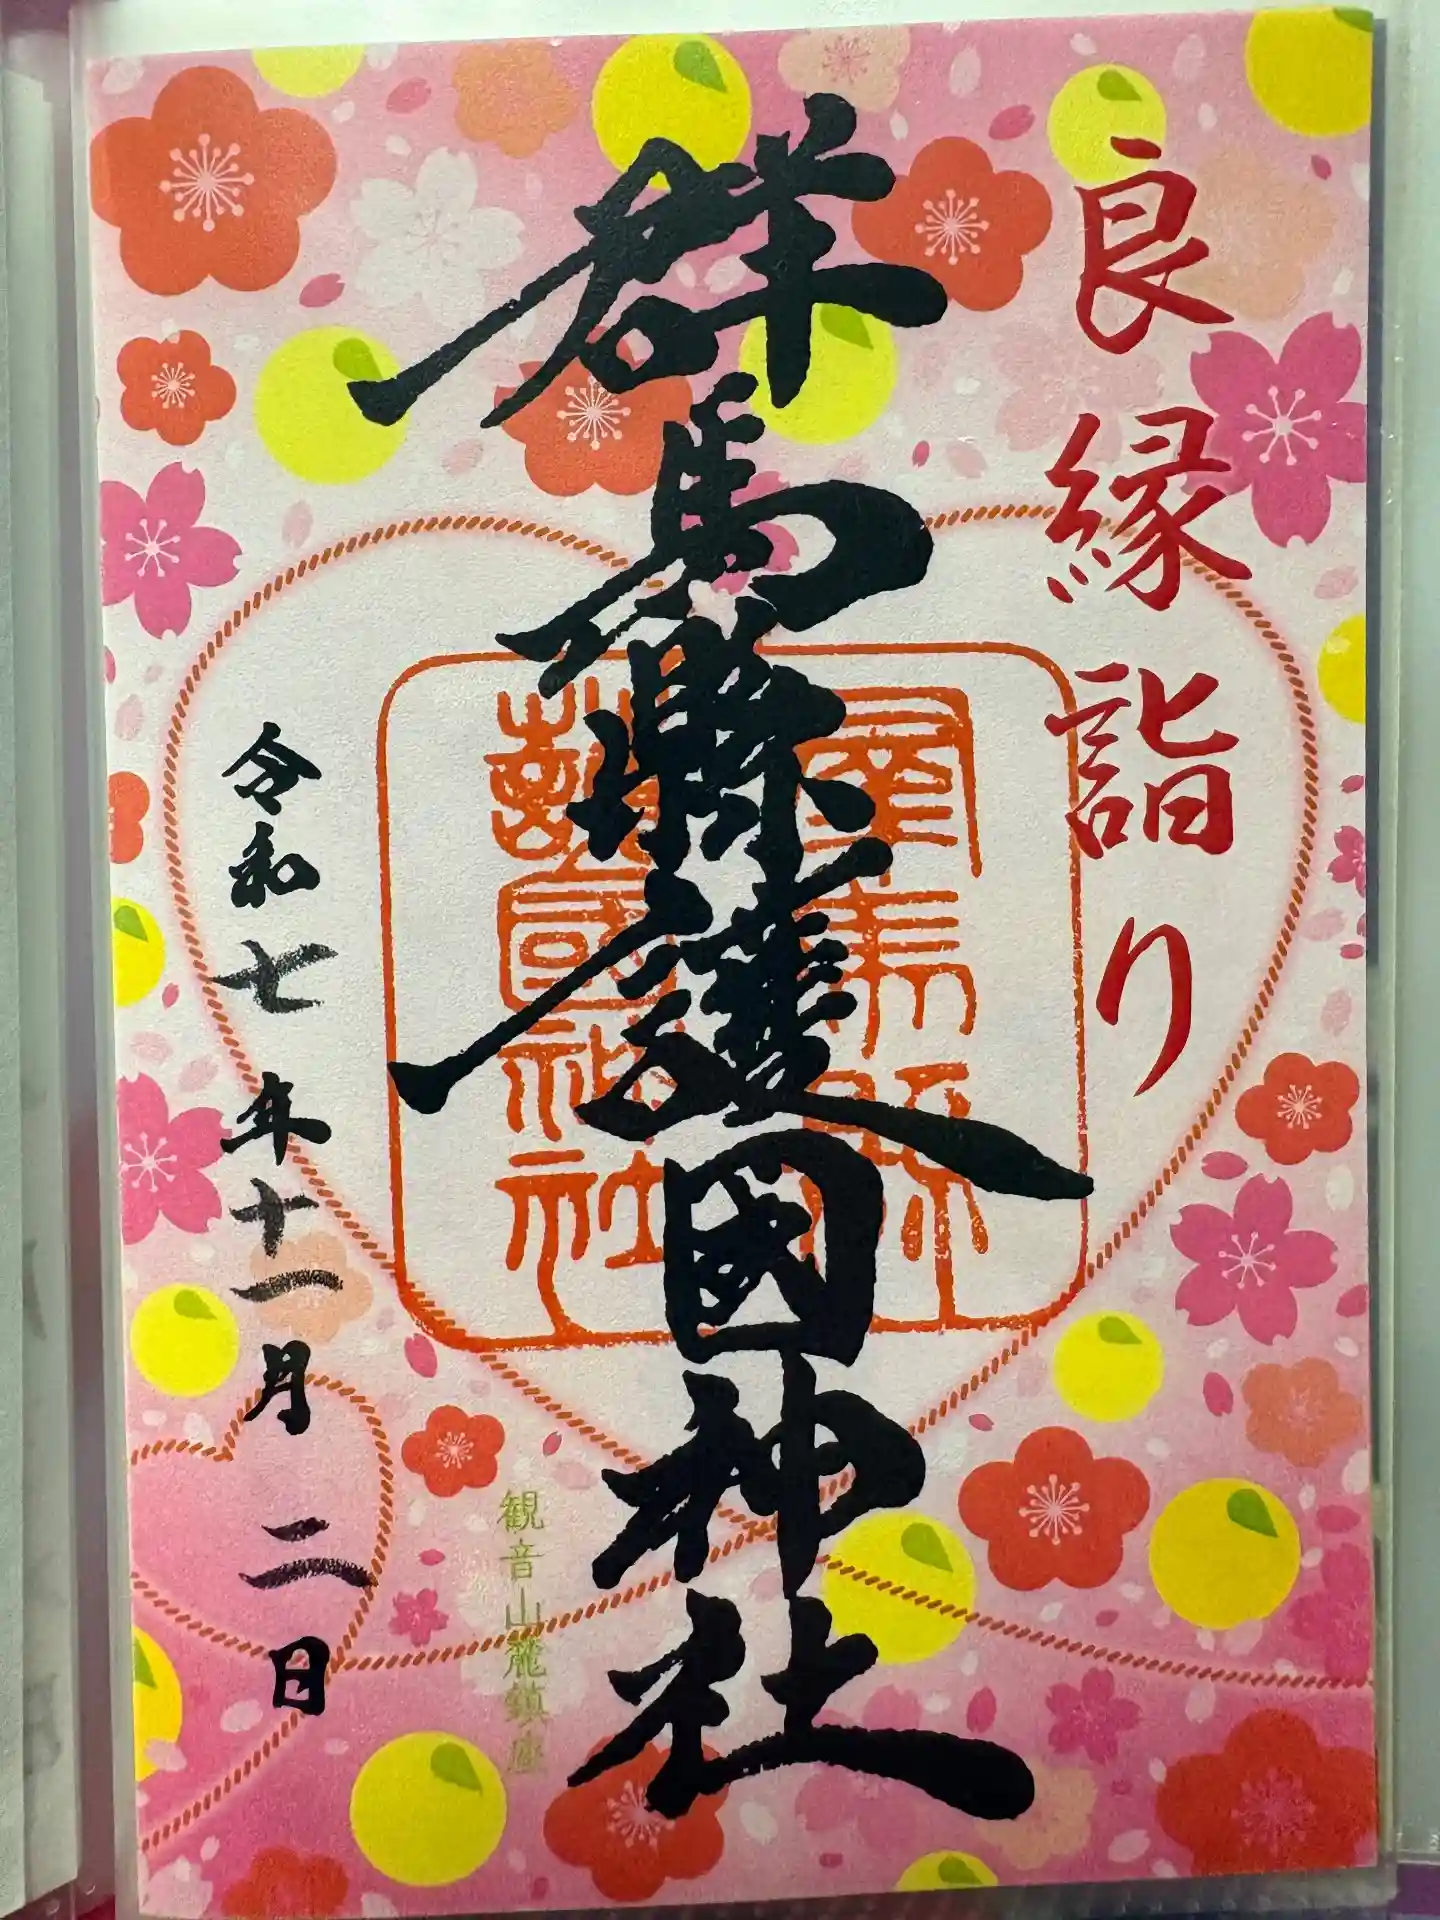 良縁詣り
群馬縣護國神社
群馬縣護國神社
観音山麓鎮座
令和七年十一月二日